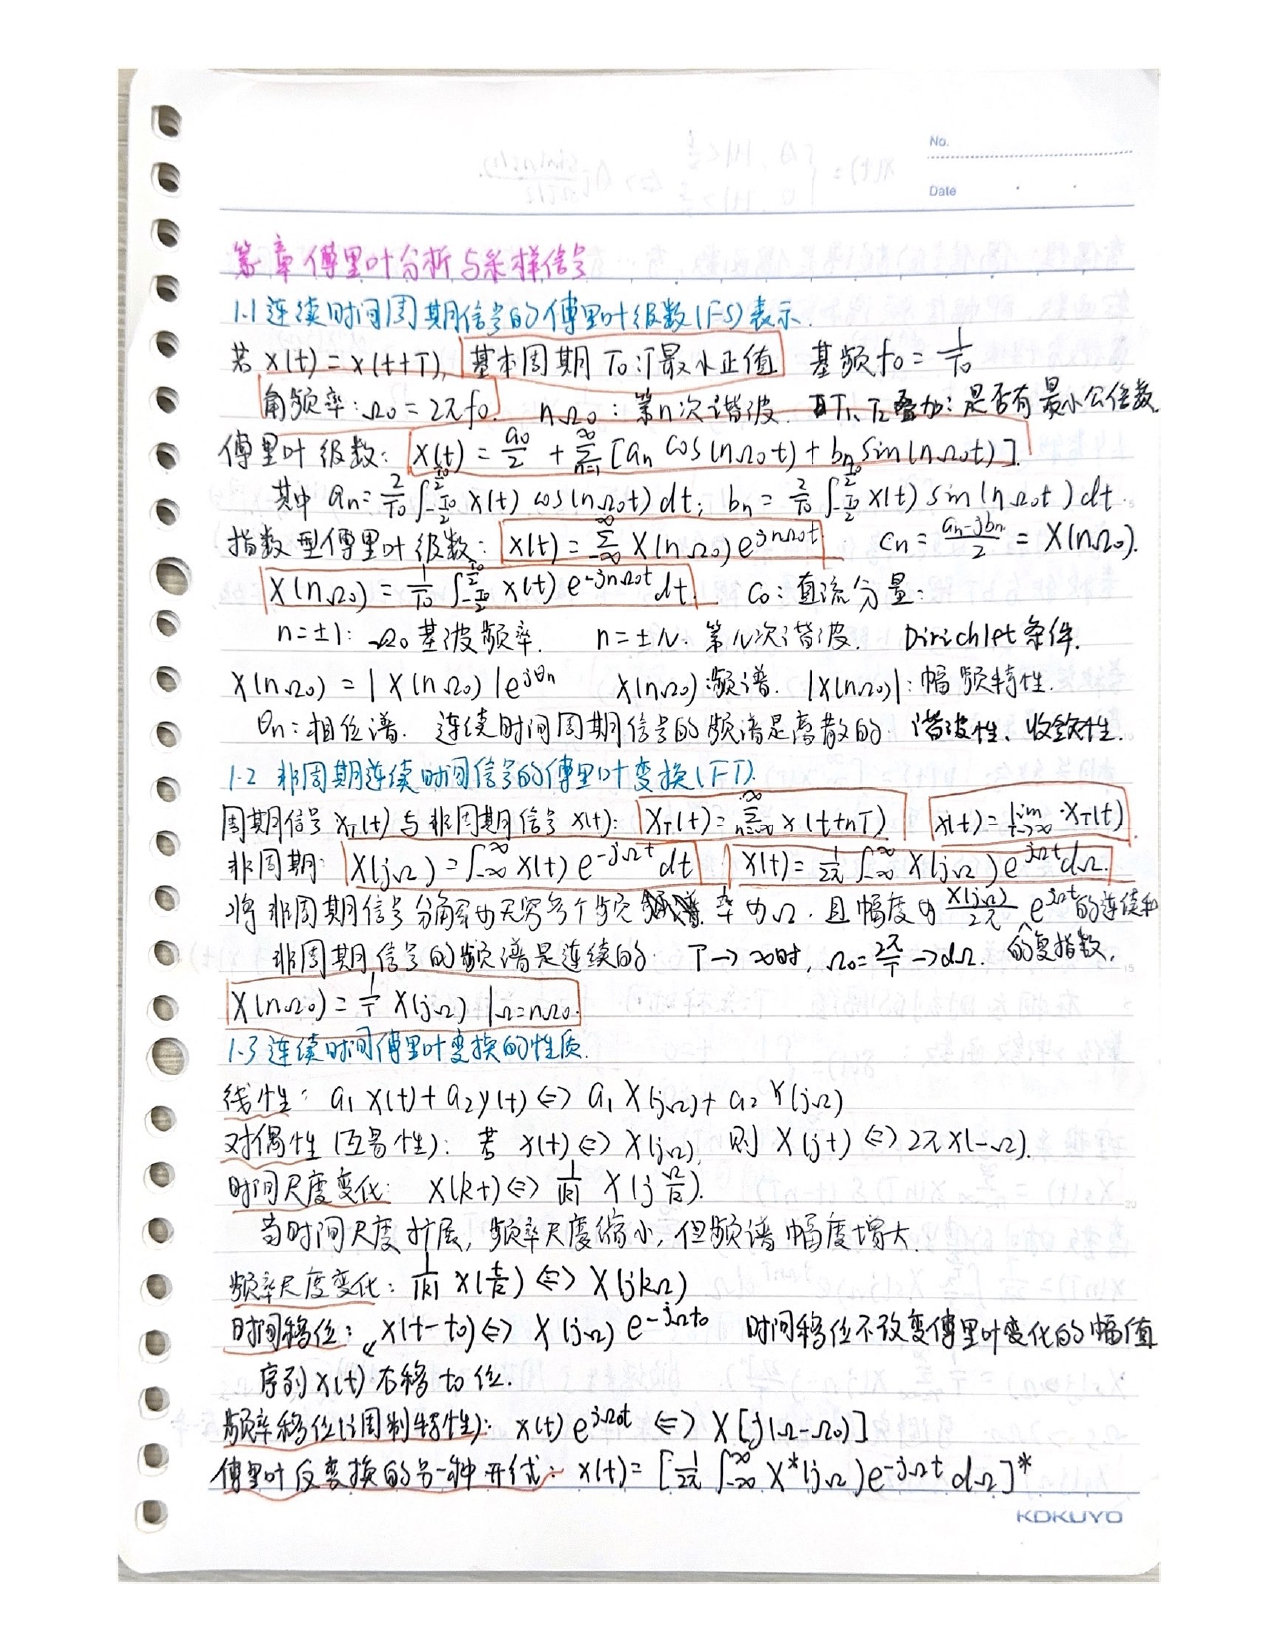 No.
Date
第一章 傅里叶分析与采样信号
1.1 连续时间周期信号的傅里叶级数(FS)表示.
若 x(t) = x(t+T), 基本周期 T₀: T最小正值 基频 f₀ = 1/T₀
角频率: Ω₀ = 2πf₀. nΩ₀: 第n次谐波. T₁、T₂叠加: 是否有最小公倍数
傅里叶级数: x(t) = a₀/2 + Σ_{n=1}^{∞} [aₙ cos(nΩ₀t) + bₙ sin(nΩ₀t)].
其中 aₙ = 2/T₀ ∫_{-T₀/2}^{T₀/2} x(t) cos(nΩ₀t) dt; bₙ = 2/T₀ ∫_{-T₀/2}^{T₀/2} x(t) sin(nΩ₀t) dt.
指数型傅里叶级数: x(t) = Σ_{-∞}^{∞} X(nΩ₀) e^{jnΩ₀t} cₙ = (aₙ-jbₙ)/2 = X(nΩ₀).
X(nΩ₀) = 1/T₀ ∫_{-T₀/2}^{T₀/2} x(t) e^{-jnΩ₀t} dt. c₀: 直流分量;
n=±1: Ω₀ 基波频率. n=±N: 第N次谐波. Dirichlet 条件.
X(nΩ₀) = |X(nΩ₀)|e^{jθₙ} X(nΩ₀): 频谱. |X(nΩ₀)|: 幅频特性.
θₙ: 相位谱. 连续时间周期信号的频谱是离散的. 谐波性、收敛性.
1.2 非周期连续时间信号的傅里叶变换(FT).
周期信号 x_T(t) 与非周期信号 x(t): x_T(t) = Σ_{n=-∞}^{∞} x(t+nT) x(t) = lim_{T→∞} x_T(t)
非周期: X(jΩ) = ∫_{-∞}^{∞} x(t) e^{-jΩt} dt x(t) = 1/2π ∫_{-∞}^{∞} X(jΩ) e^{jΩt} dΩ.
将非周期信号分解为无穷多个频率为Ω, 且幅度为 X(jΩ)/2π e^{jΩt} 的连续和
非周期信号的频谱是连续的. T→∞时, Ω₀ = 2π/T → dΩ. 的复指数,
X(nΩ₀) = 1/T X(jΩ) |_{Ω=nΩ₀}.
1.3 连续时间傅里叶变换的性质.
线性: a₁x(t) + a₂y(t) ⇔ a₁X(jΩ) + a₂Y(jΩ)
对偶性(互易性): 若 x(t) ⇔ X(jΩ), 则 X(jt) ⇔ 2πx(-Ω).
时间尺度变化: x(kt) ⇔ 1/|k| X(j Ω/k).
当时间尺度扩展, 频率尺度缩小, 但频谱幅度增大.
频率尺度变化: 1/|k| x(t/k) ⇔ X(jkΩ)
时间移位: x(t-t₀) ⇔ X(jΩ) e^{-jΩt₀} 时间移位不改变傅里叶变化的幅值
序列 x(t) 右移 t₀ 位.
频率移位(调制特性): x(t) e^{jΩ₀t} ⇔ X[j(Ω-Ω₀)]
傅里叶反变换的另一种形式: x(t) = [1/2π ∫_{-∞}^{∞} X*(jΩ) e^{-jΩt} dΩ]*
KOKUYO